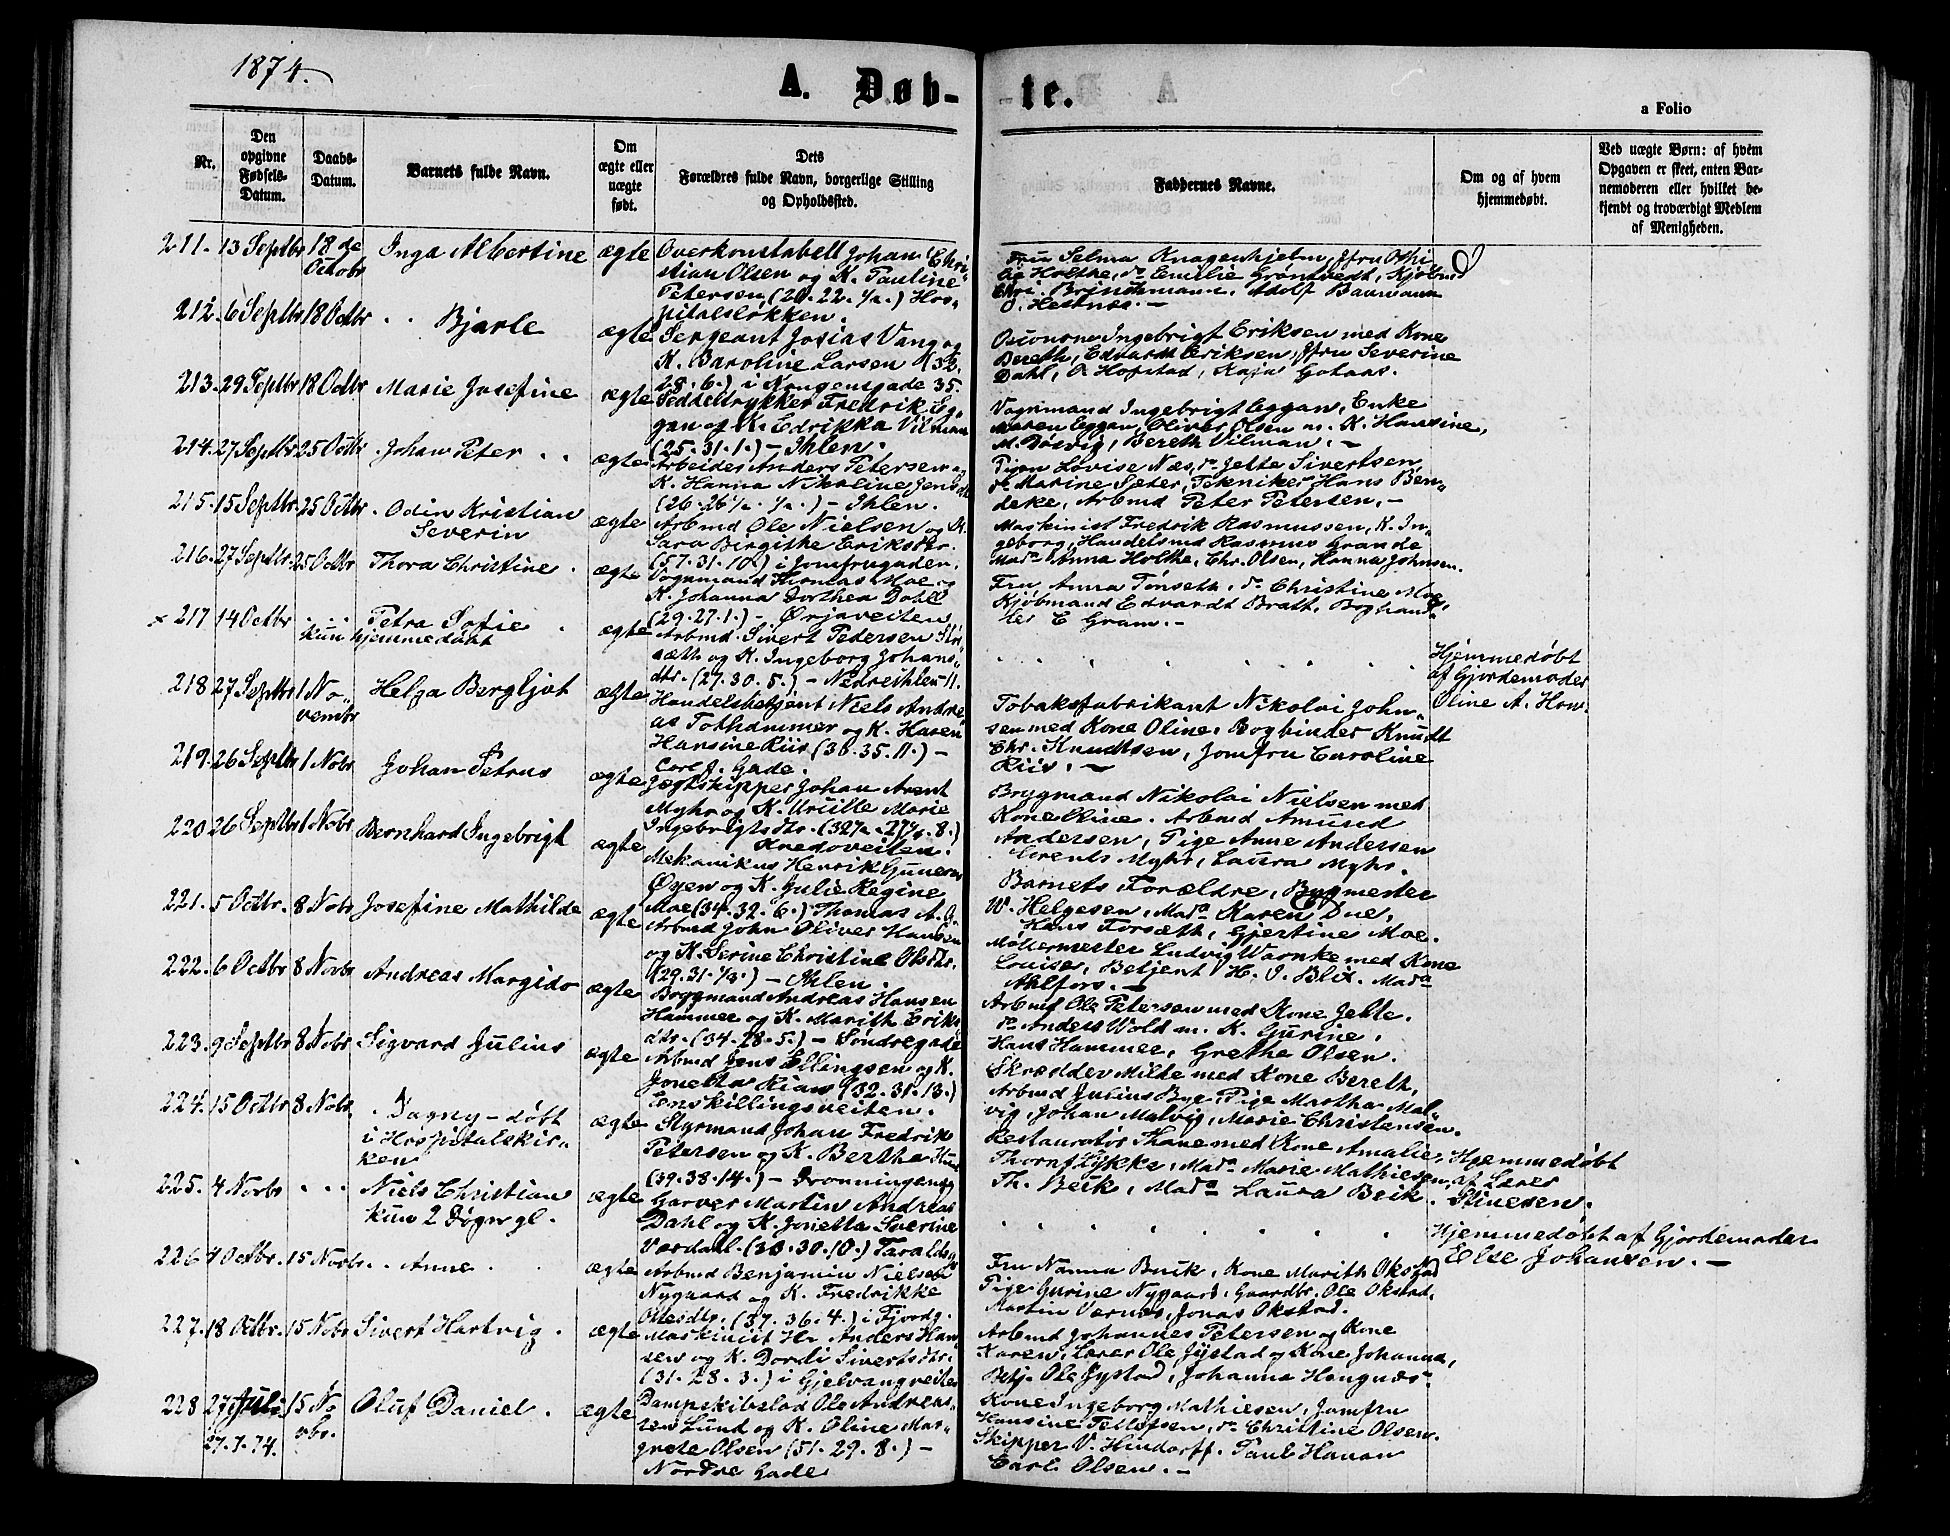 1874.
A. Døb-
te.
a Folio
Nr.
Den opgivne Fødsels-Datum.
Daabs-Datum.
Barnets fulde Navn.
Om ægte eller uægte født.
Dets Forældres fulde Navn, borgerlige Stilling og Opholdssted.
Faddernes Navne.
Om og af hvem hjemmedøbt.
Ved uægte Børn: af hvem Opgaven er skeet, enten Barnemoderen eller hvilket bekjendt og troværdigt Medlem af Menigheden.
211. 13 Septbr 18de Octobr Inga Albertine ægte
Overkonstabell Johan Chri-
stian Olsen og K. Pauline
Petersen (20.22.½.) Hos-
pitalsløkken.
Fru Selma Knagenhjelm, Jfru Othi-
lie Holthe, do Emilie Grønsvedt, Kjøbmd
Chri. Brinchmann, Adolf Baumann
O. Hestnes. -
212. 6 Septbr 18 Octbr Bjarle ægte
Sergeant Josias Vang og
K. Baroline Larsen
28.6.) i Kongensgade 35.
Ingebrigt Eriksen med Kone
Bereth, Edvardt Eriksen, Jfru Severine
Dahl, O. Hofstad, Kaja Gotaas.
213. 29 Septbr 18 Octbr Marie Josefine ægte
Seddeltrykker Fredrik Eg-
gan og K. Edrikka Vilman
(25.31.1.) - Ihlen.
Vognmand Ingebrigt Eggan, Enke
Maren Eggan, Oliver Olsen m. K. Hansine,
M. Døsvig, Bereth Vilman. -
214. 27 Septbr 25 Octbr Johan Peter ægte
Arbeider Anders Petersen og
K. Hanna Nikoline Jensdtr
(26.26½.½.) - Ihlen.
Pigen Lovise Næs, do Jette Sivertsen
do Marine Sæter, Tekniker Hans Ben-
deke, Arbmd Peter Petersen. -
215. 15 Septbr 25 Octbr Odin Kristian
Severin ægte
Arbmd Ole Nielsen og K.
Sara Birgithe Eriksdtr.
(57.31.10.) i Jomfrugaden.
Maskinist Fredrik Rasmussen, K. In-
geborg, Handelsmd Rasmus Grande
Mada Anna Holthe, Chr. Olsen, Hanna Johnsen.
216. 27 Septbr 25 Octbr Thora Christine ægte
Vognmand Thomas Moe og
K. Johanna Dorthea Dahl
(29.27.1.) - Ørjaveiten
Fru Anna Tønseth, do Christine Moe,
Kjøbmand Edvardt Bratt, Boghand-
ler E Gram. -
x 217 14 Octbr Petra Sofie
kun hjemmedøbt ægte
Arbmd. Sivert Pedersen
sæth og K. Ingeborg Johans-
dtr. (27.30.5.) - Nedreihlen 11.
Hjemmedøbt
af Gjordemoder
Oline A. Han-
218 27 Septbr 1 No-
vembr Helga Bergljot ægte
Handelsbetjent Niels Andre-
as Tothammer og K. Haren
Hansine Riis (38.35.11.) -
Carl J. Gade.
Tobaksfabrikant Nikolai John-
sen med Kone Oline, Bogbinder Knudt
Chr. Knudtsen, Jomfru Caroline
Riis. -
219. 26 Septbr 1 Nobr Johan Petrus ægte
Jægtskipper Johan Arent
Myhr og K. Marie
Ingebrigtsdtr. 8.)
Kredoveiten.
Brygmand Nikolai Nielsen med
Kone Eline. Arbmd Amund
Andersen, Pige Anne Andersen
Lorents Myhr, Laura Myhr.
220 26 Septbr 1 Nobr Bernhard Ingebrigt ægte
Mekanikus Henrik
Øyen og K. Julie Regine
Moe (34.32.6.) Thomas A. G.
Barnets Forældre, Bygmester
W. Helgesen, Mada Karen Due,
Hans Forsæth, Gjertine Moe.
221. 5 Octbr. 8 Nobr Josefine Mathilde ægte
Arbmd John Oliver Hansen
og K. Serine Christine Olsdtr.
(29.31.½.) - Ihlen.
Møllermester Ludvig Warnke med Kone
Louise, Betjent H. J. Blix. Mada
Ahlfors. -
222. 6 Octbr 8 Nobr Andreas Margido ægte
Bryggmand Andreas Hansen
Hammer og K. Marith Eriks-
dtr. (34.28.5.) - Søndregade
Arbmd Ole Petersen med Kone Jette.
do Anders Wold m. K. Gurine,
Hans Hammer, Grethe Olsen.
223. 9 Septbr 8 Nobr Sigvard Julius ægte
Arbmd Jens Ellingsen og K.
Jonetta Rian (32.31.13.)
Enskillingsveiten.
Skrædder Milde med Kone Bereth,
Arbmd Julius Bye, Pige Martha Mal-
vig, Johan Malvig, Marie Christensen.
224. 15 Octbr 8 Nobr. Dagny - døbt
i Hospitalskir-
ken ægte
Styrmand Johan Fredrik
Petersen og K. Bertha
(39.38.14.) - Dronningensg
Restauratør Thane med Kone Amalie,
Thorn Lykke, Mada Marie Mathiesen,
Th. Beik, Mada Laura Beik.
Hjemmedøbt
af Lærer
Stinesen.
225. 4 Norbr Niels Christian
kun 2 Døgn gl. ægte
Garver Martin Andreas
Dahl og K. Jonetta Severine
Værdahl. (33.30.10.) Taraldsg
Hjemmedøbt af Gjordemoder
Else Johansen. -
226 4 Octbr. 15 Norbr. Anne ægte
Arbmd Benjamin Nielsen
Nygaard og K. Fredrikke
Olesdtr. (37.36.4.) i Fjordg.
Fru Nanna Buik, Kone Marith Okstad
Pige Gurine Nygaard, Gaardbr. Ole Okstad,
Martin Værnes, Jonas Okstad.
227. 18 Octbr. 15 Nobr Sivert Hartvig ægte
Maskinist Hr Anders Han-
sen og K. Dordi Sivertsdtr.
(31.28.3.) i Gjelvangveiten
Arbmd Johannes Petersen og Kone
Karen, Lærer Ole Jystad og Kone Johanna,
Betj. Ole Jystad, Johanna Haugnæs.
228 27 Juli 15 No-
vbr. Oluf Daniel ægte
27.7.74.
Dampskibslod Ole Andreas-
sen Lund og K. Oline Mar-
grete Olsen (51.29.8.) -
Nordre Gade
Kone Ingeborg Mathiesen, Jomfru
Hansine Tellefsen, do Christine Olsen.
Skipper V. Hindorff. Paul Hanan
Carl Olsen. -